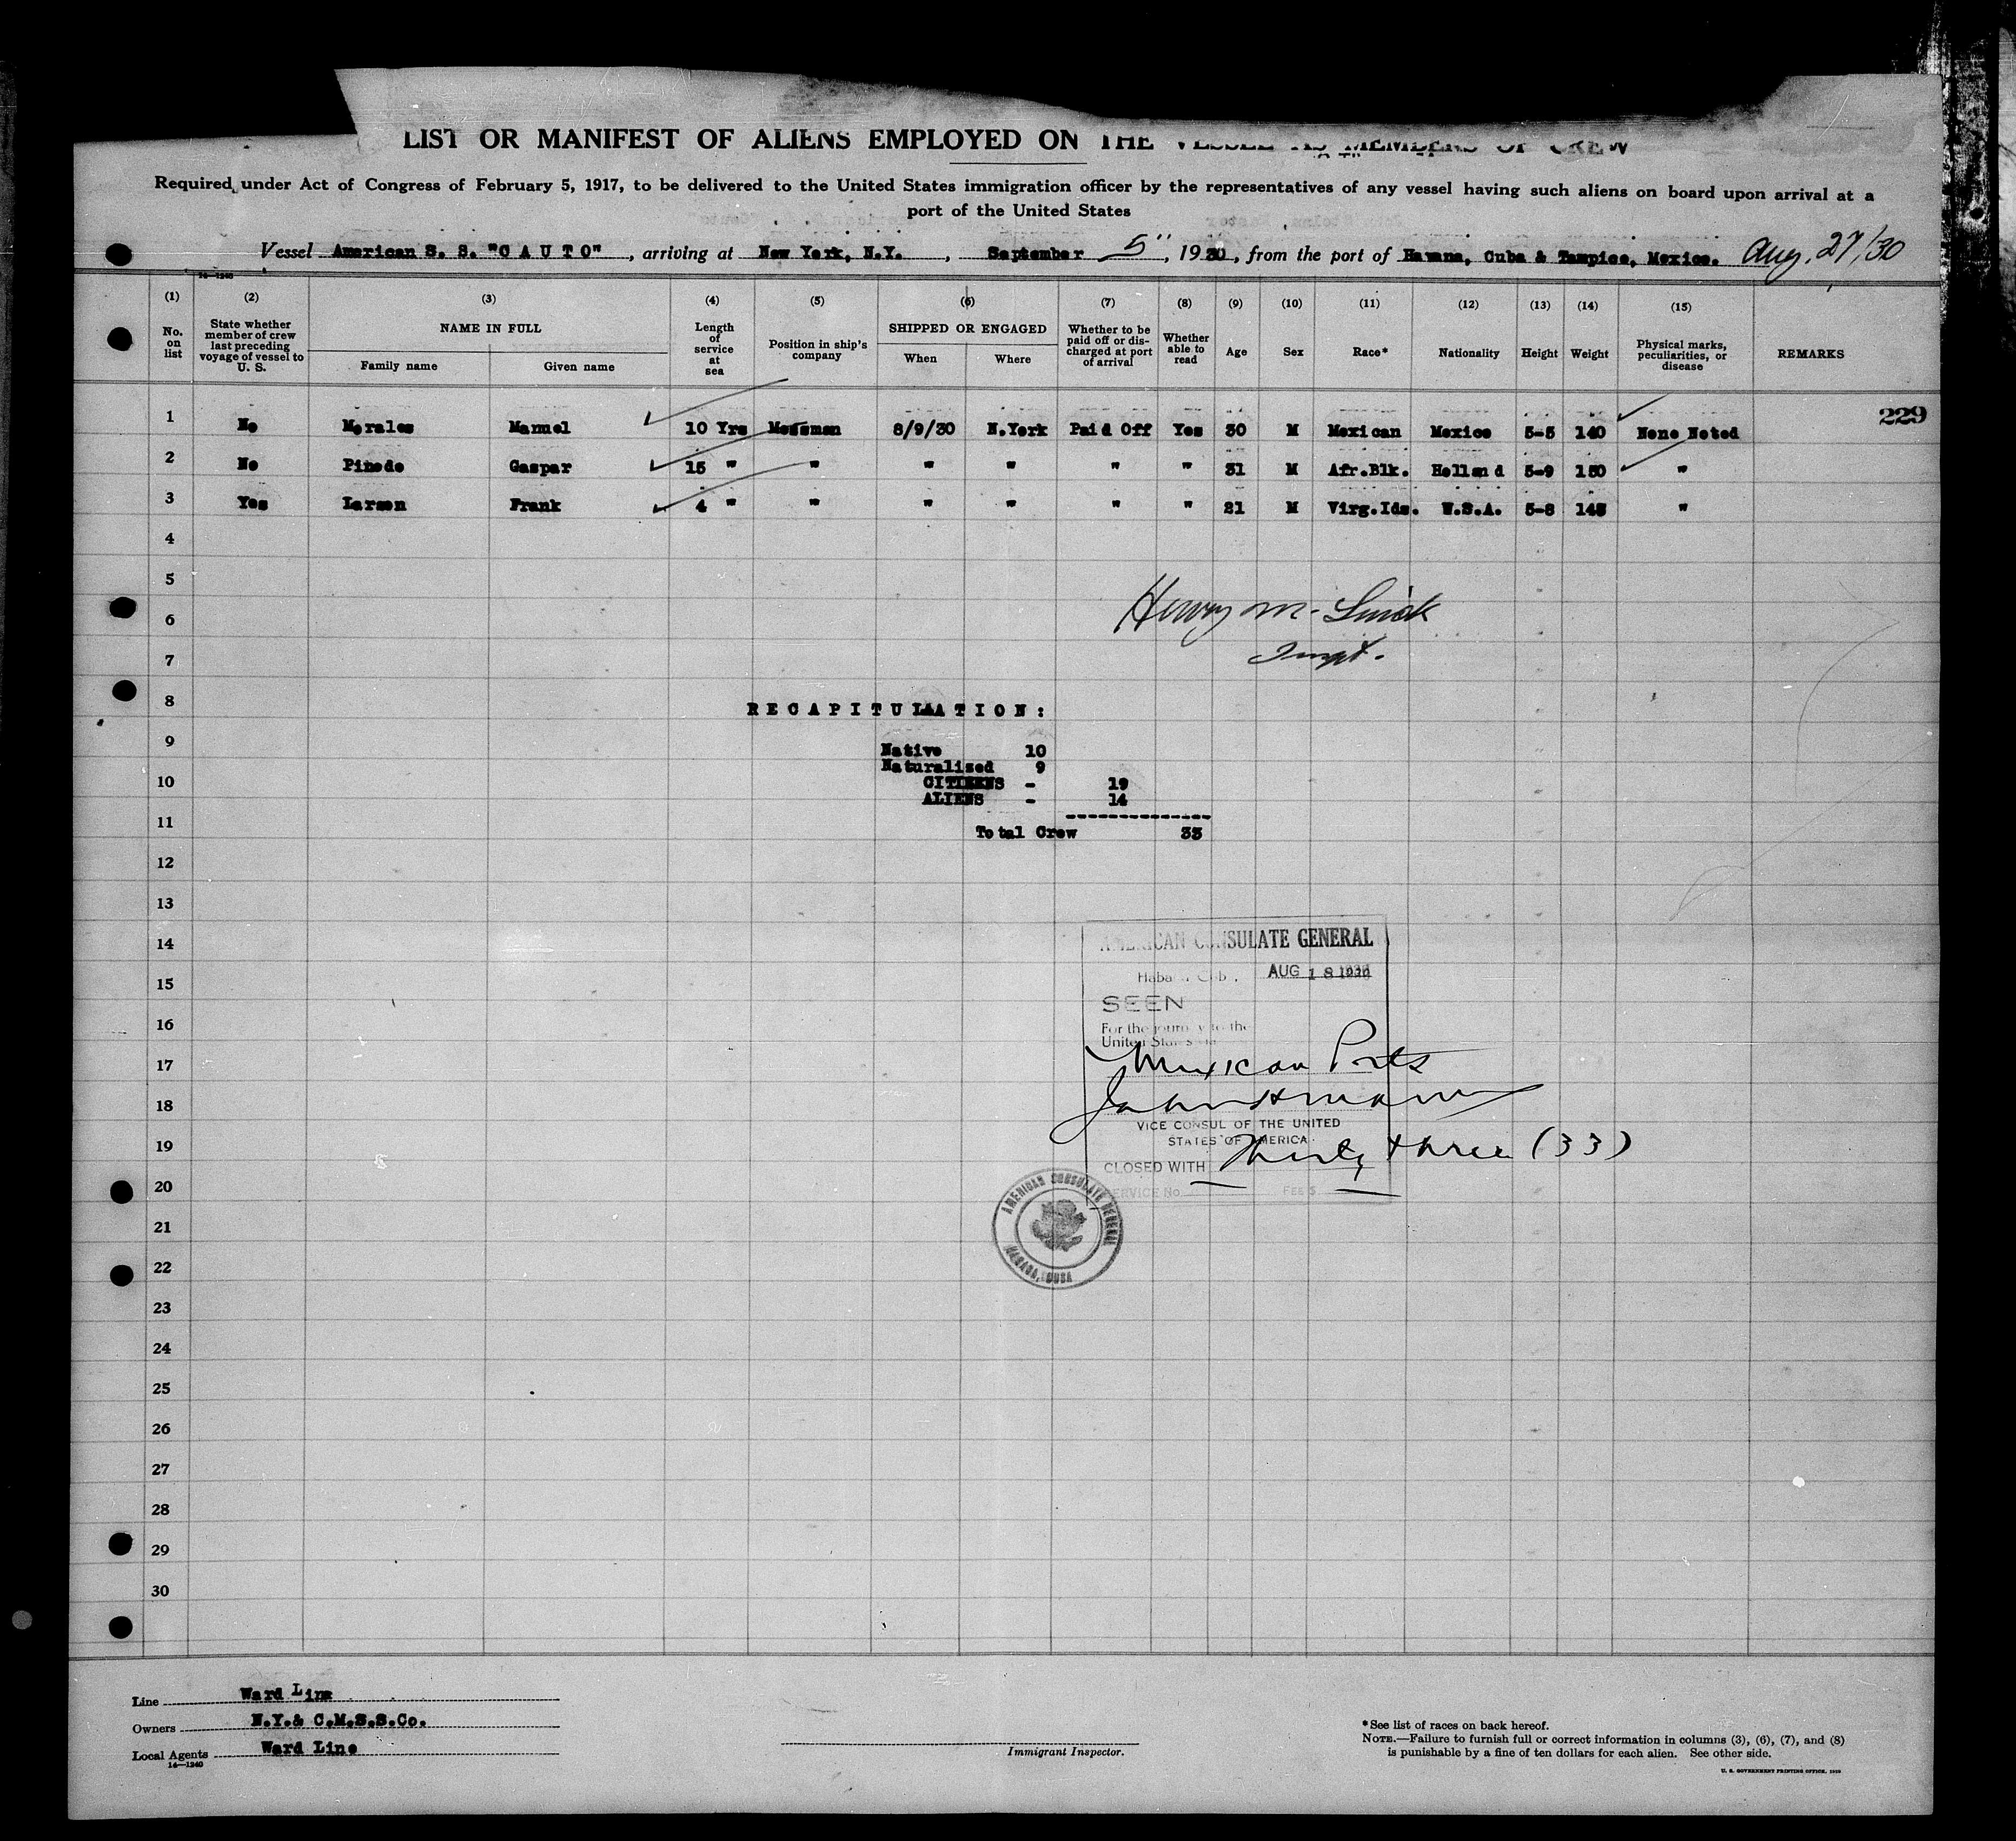 LIST OR MANIFEST OF ALIENS EMPLOYED ON THE VESSEL AS MEMBERS OF CREW
Required under Act of Congress of February 5, 1917, to be delivered to the United States immigration officer by the representatives of any vessel having such aliens on board upon arrival at a
port of the United States
Vessel American S. S. "C A U T O", arriving at New York, N.Y., September 5", 1930, from the port of Havana, Cuba & Tampico, Mexico. Aug. 27/30
14—1240
(1) (2) (3) (4) (5) (6) (7) (8) (9) (10) (11) (12) (13) (14) (15)
No. on list State whether member of crew last preceding voyage of vessel to U. S. NAME IN FULL Family name Given name Length of service at sea Position in ship's company SHIPPED OR ENGAGED When Where Whether to be paid off or discharged at port of arrival Whether able to read Age Sex Race* Nationality Height Weight Physical marks, peculiarities, or disease REMARKS
229
1 No Morales Manuel 10 Yrs Messman 8/9/30 N.York Paid Off Yes 30 M Mexican Mexico 5-5 140 None Noted
2 No Pinedo Gaspar 15 " " " " " " 31 M Afr.Blk. Holland 5-9 150 "
3 Yes Larsen Frank 4 " " " " " " 21 M Virg.Ids. U.S.A. 5-8 145 "
4
5
6 Henry M.
7 Inspt.
8
RECAPITULATION:
9
Native 10
Naturalized 9
10
CITIZENS - 19
ALIENS - 14
11
Total Crew 33
12
13
14
AMERICAN CONSULATE GENERAL
15
Habana, Cuba, AUG 18 1930
SEEN
16
For the journey to the
United States via
17
Mexican Ports
18
VICE CONSUL OF THE UNITED
STATES OF AMERICA
19
CLOSED WITH Thirty three (33)
20
SERVICE No. FEE $
AMERICAN CONSULATE GENERAL
HABANA, CUBA
21
22
23
24
25
26
27
28
29
30
Line Ward Line
Owners N.Y.& C.M.S.S.Co.
Local Agents Ward Line
14—1240
Immigrant Inspector.
*See list of races on back hereof.
NOTE.—Failure to furnish full or correct information in columns (3), (6), (7), and (8)
is punishable by a fine of ten dollars for each alien. See other side.
U. S. GOVERNMENT PRINTING OFFICE, 1929